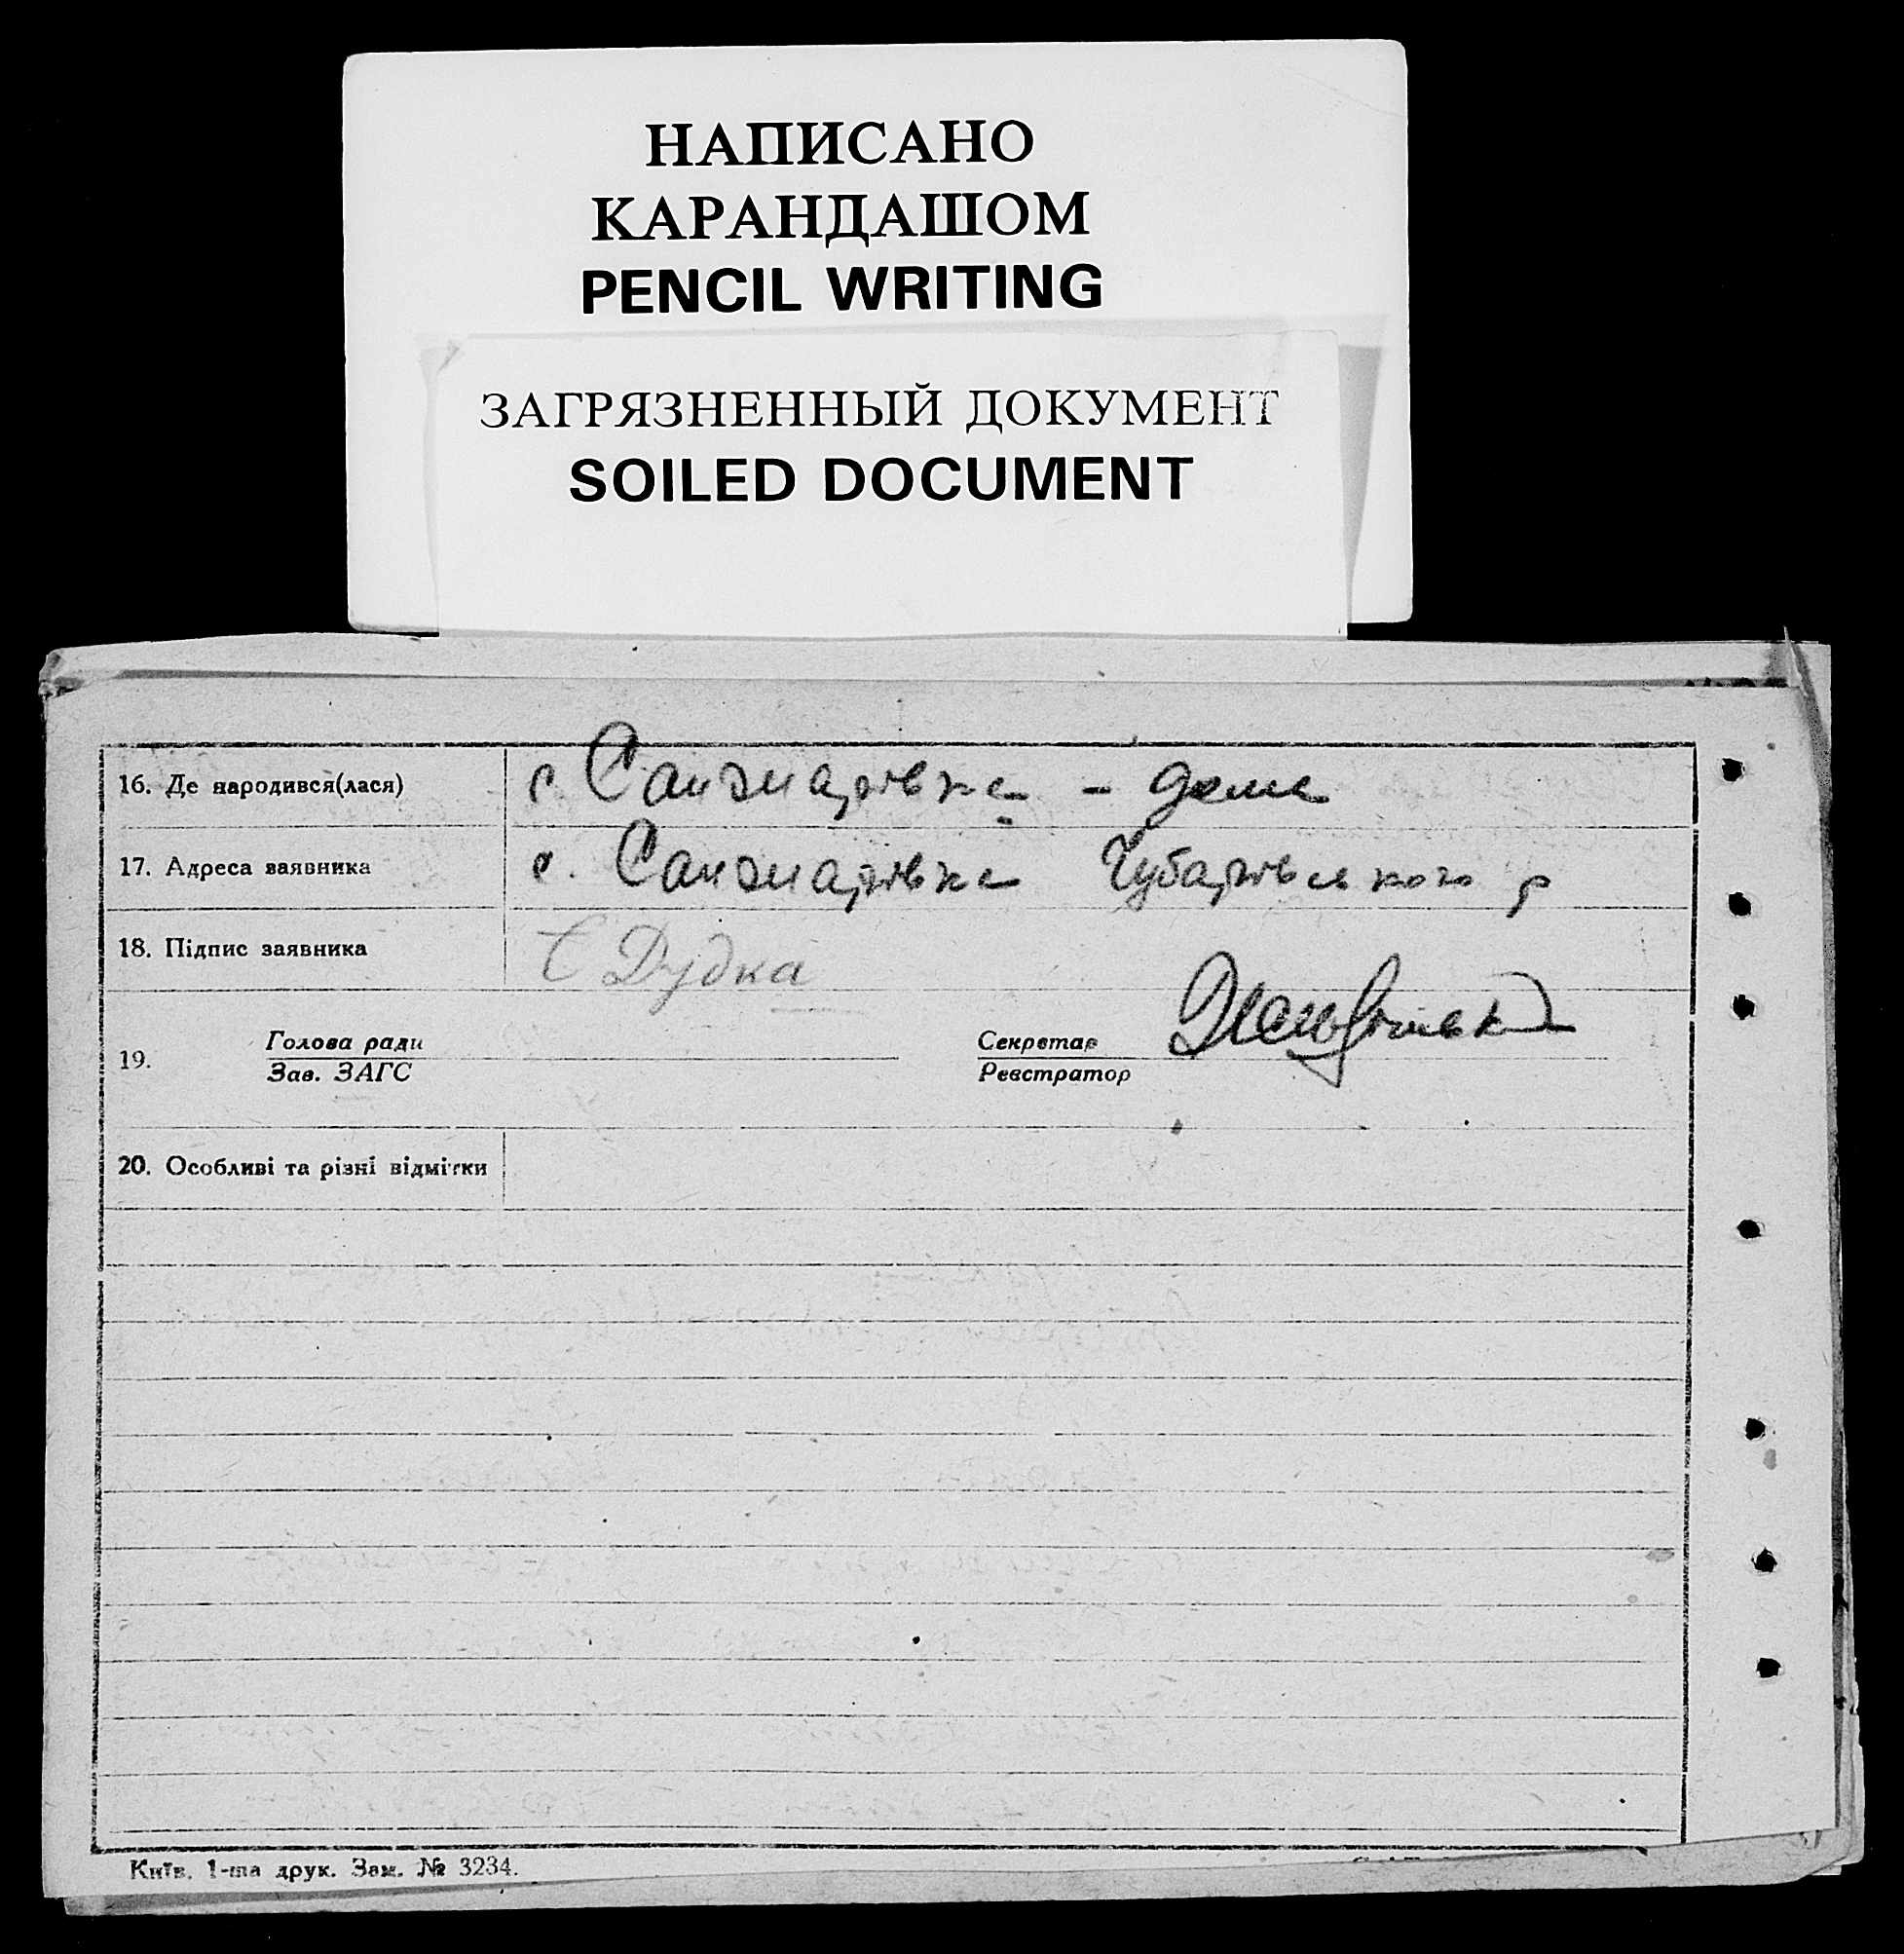 НАПИСАНО
КАРАНДАШОМ
PENCIL WRITING
ЗАГРЯЗНЕННЫЙ ДОКУМЕНТ
SOILED DOCUMENT
16. Де народився(лася) с Санжарівка - дома
17. Адреса заявника с. Санжарівка Чубарівського р
18. Підпис заявника С Дудка
19. Голова ради Секретар
Зав. ЗАГС Реєстратор
20. Особливі та різні відмітки
Київ. 1-ша друк. Зам. № 3234.